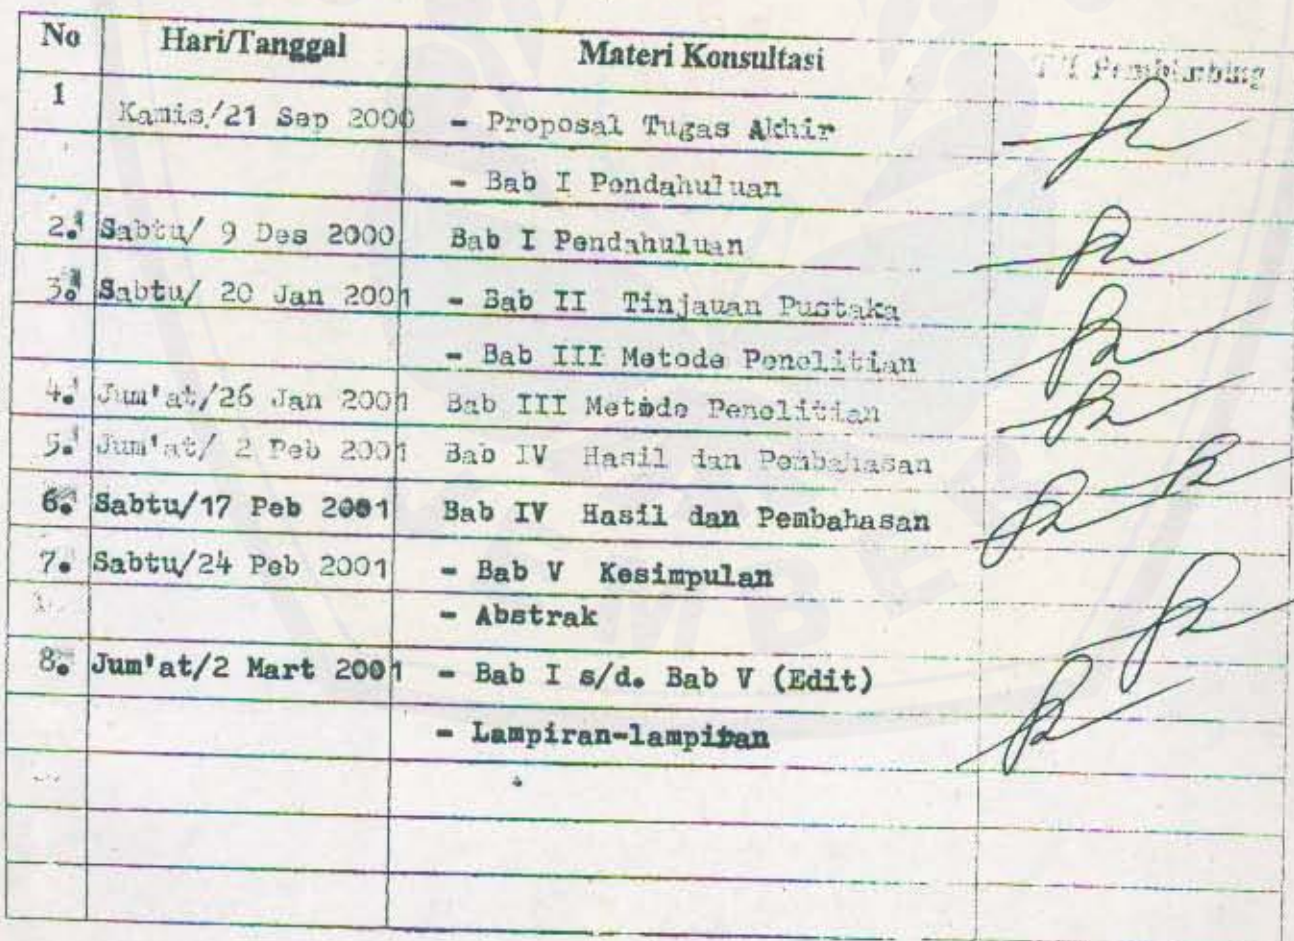 No Hari/Tanggal Materi Konsultasi TT Pembimbing
1 Kamis/21 Sep 2000 - Proposal Tugas Akhir
- Bab I Pendahuluan
2. Sabtu/ 9 Des 2000 Bab I Pendahuluan
3. Sabtu/ 20 Jan 2001 - Bab II Tinjauan Pustaka
- Bab III Metode Penelitian
4. Jum'at/26 Jan 2001 Bab III Metode Penelitian
5. Jum'at/ 2 Peb 2001 Bab IV Hasil dan Pembahasan
6. Sabtu/17 Peb 2001 Bab IV Hasil dan Pembahasan
7. Sabtu/24 Peb 2001 - Bab V Kesimpulan
- Abstrak
8. Jum'at/2 Mart 2001 - Bab I s/d. Bab V (Edit)
- Lampiran-lampiran